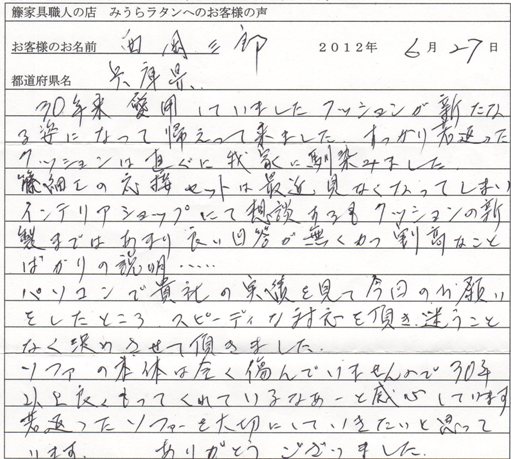 籐家具職人の店　みうらラタンへのお客様の声
お客様のお名前　西岡三郎　2012年　6月27日
都道府県名　兵庫県
30年来愛用していましたクッションが新たな
る姿になって帰えって来ました　すっかり若返った
クッションは直ぐに我家に馴染みました。
籐細工の応接セットは最近見なくなってしまい
インテリアショップにて相談するもクッションの新
製まではあまり良い回答が無くかつ割高なこと
ばかりの説明‥‥‥
パソコンで貴社の実績を見て今回のお願い
をしたところ　スピーディな対応を頂き迷うこと
なく決めさせて頂きました。
ソファの本体は全く傷んでいませんので30年
以上良くもってくれているなあーと感心しています
若返ったソファーを大切にしていきたいと思って
います。　ありがとうございました。